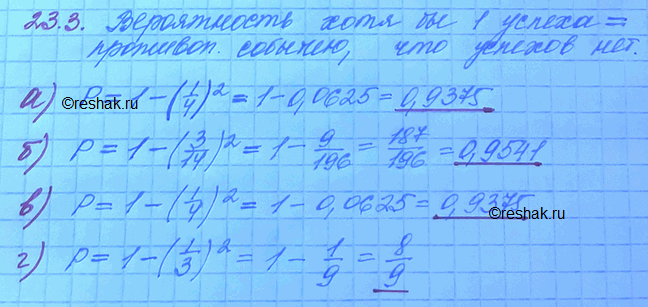 23.3. Вероятность хотя бы 1 успеха =
противоп. событию, что успехов нет.
а) P = 1 - (1/4)² = 1 - 0,0625 = 0,9375
©reshak.ru
б) P = 1 - (3/14)² = 1 - 9/196 = 187/196 = 0,9541
в) P = 1 - (1/4)² = 1 - 0,0625 = 0,9375
©reshak.ru
г) P = 1 - (1/3)² = 1 - 1/9 = 8/9